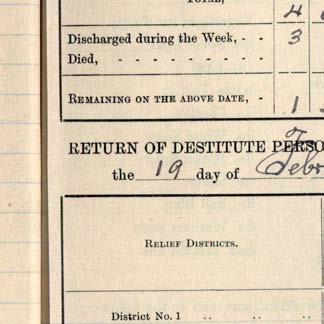 TOTAL, 4
Discharged during the Week, - - 3
Died, - - - - - - - -
REMAINING ON THE ABOVE DATE, - 1
RETURN OF DESTITUTE
the 19 day of
RELIEF DISTRICTS.
District No. 1 .. .. ..